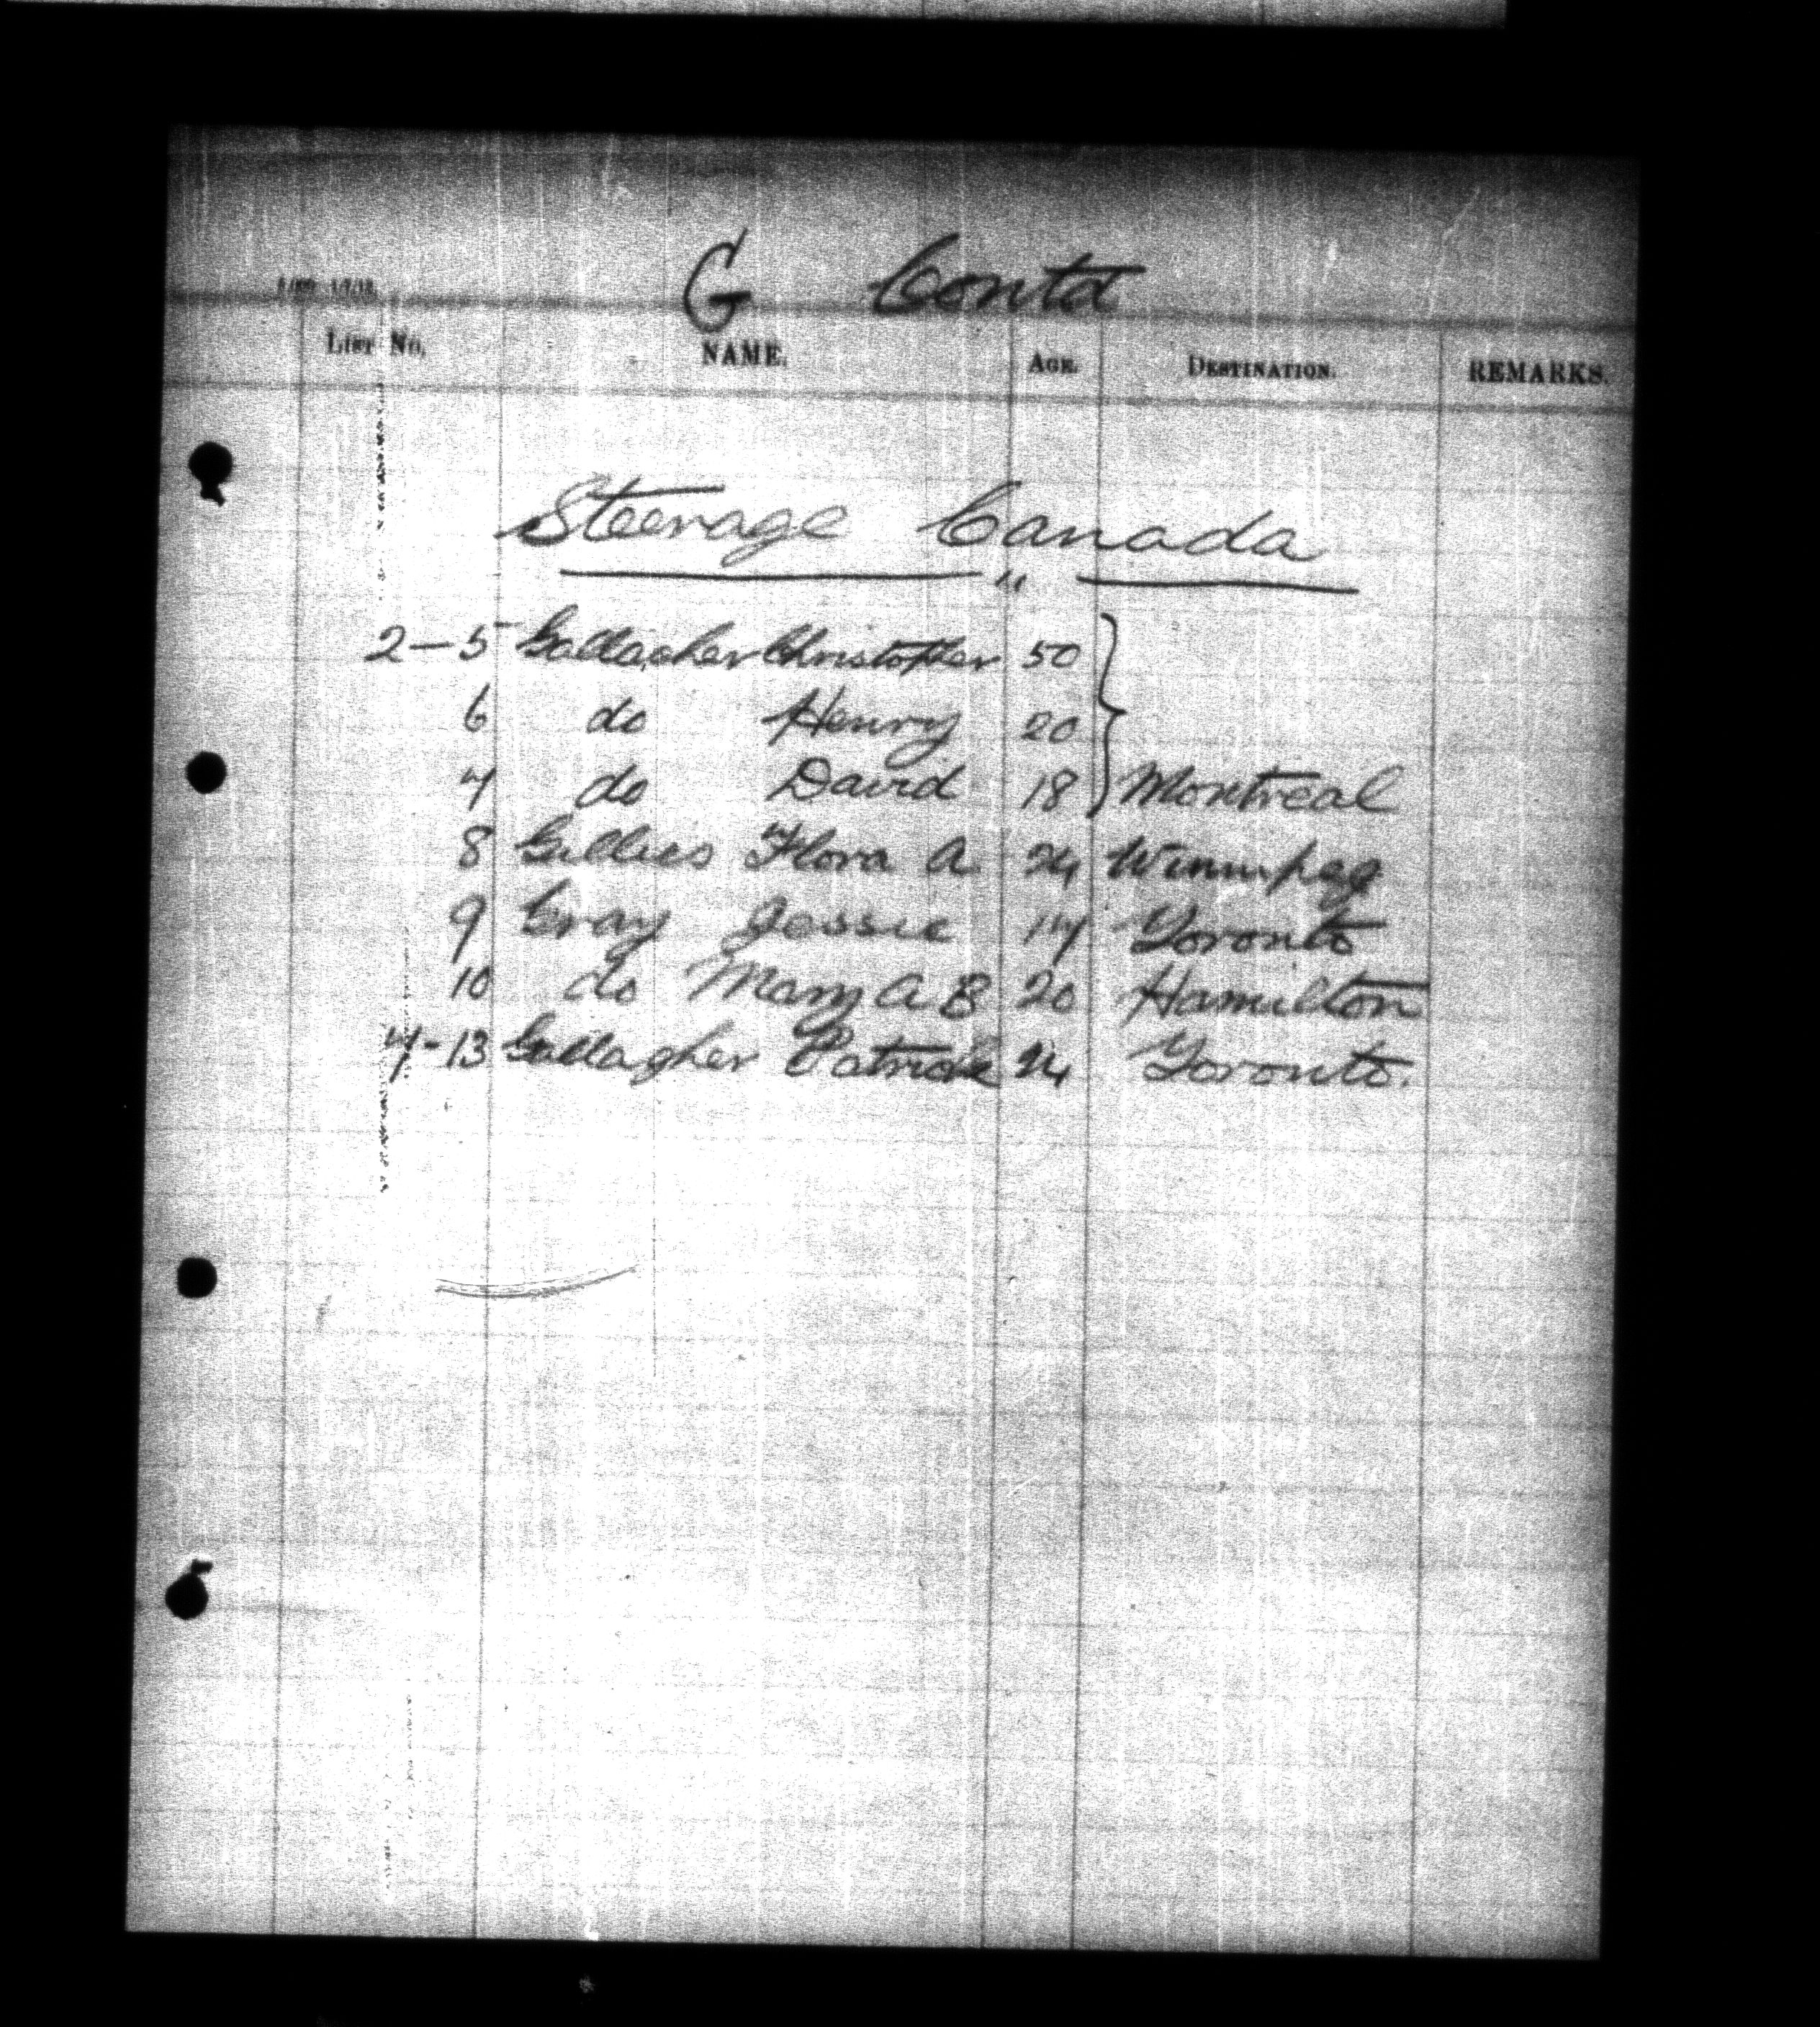 G Contd
List No. NAME. AGE. DESTINATION. REMARKS.
Steerage Canada
2-5 Gallagher Christopher 50
6 do Henry 20
7 do David 18 Montreal
8 Gillies Flora A 24 Winnipeg
9 Gray Jessie 17 Toronto
10 do Mary A B 20 Hamilton
7-13 Gallagher Patrick 24 Toronto.